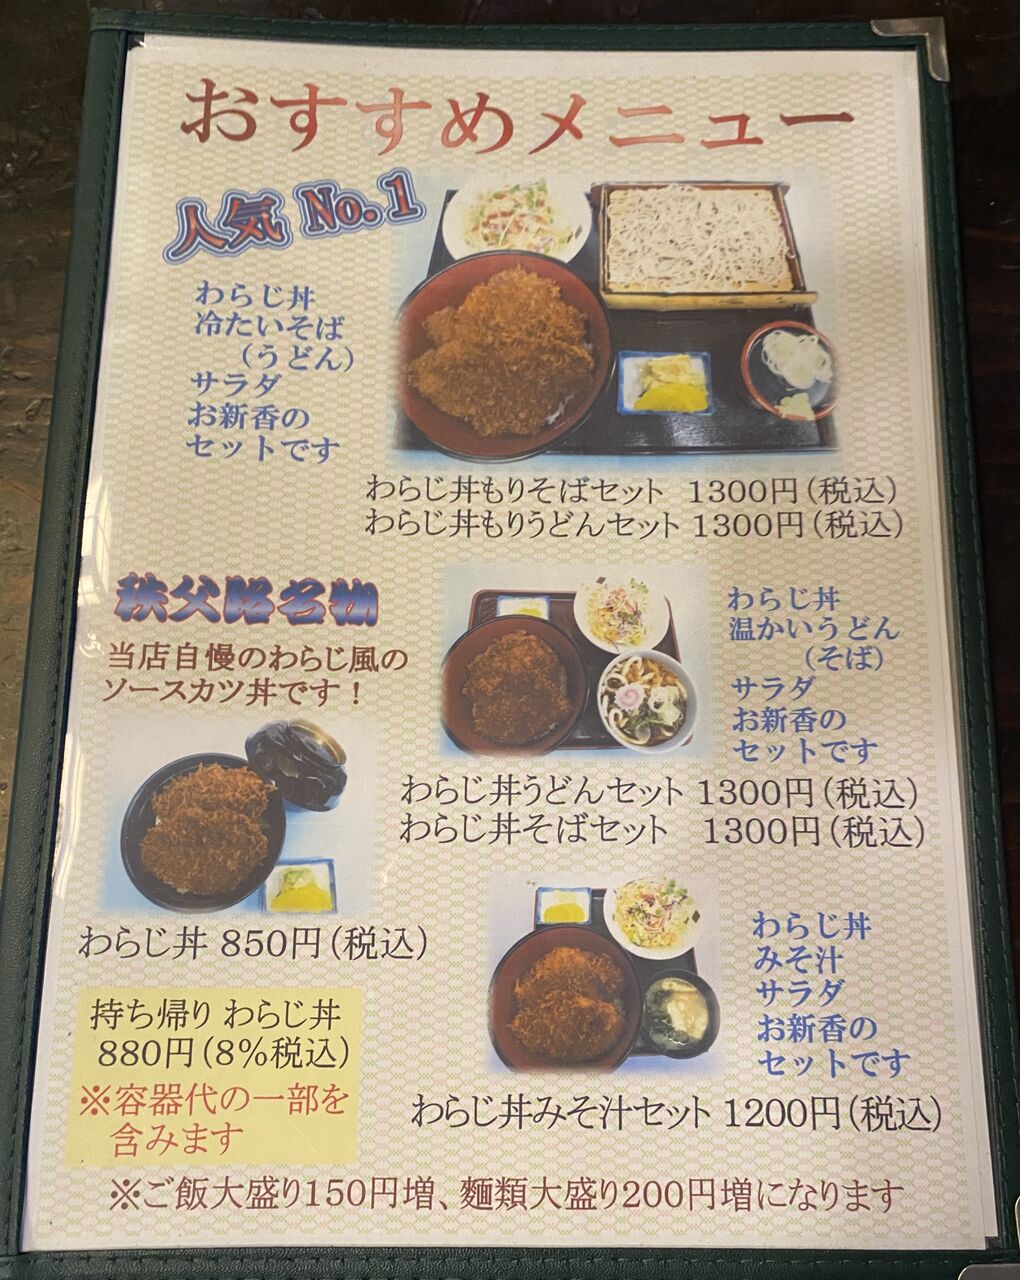 おすすめメニュー
人気 No.1
わらじ丼
冷たいそば
(うどん)
サラダ
お新香の
セットです
わらじ丼もりそばセット 1300円(税込)
わらじ丼もりうどんセット 1300円(税込)
秩父路名物
当店自慢のわらじ風の
ソースカツ丼です!
わらじ丼
温かいうどん
(そば)
サラダ
お新香の
セットです
わらじ丼うどんセット 1300円(税込)
わらじ丼そばセット 1300円(税込)
わらじ丼 850円(税込)
持ち帰り わらじ丼
880円(8%税込)
※容器代の一部を
含みます
わらじ丼
みそ汁
サラダ
お新香の
セットです
わらじ丼みそ汁セット 1200円(税込)
※ご飯大盛り150円増、麺類大盛り200円増になります